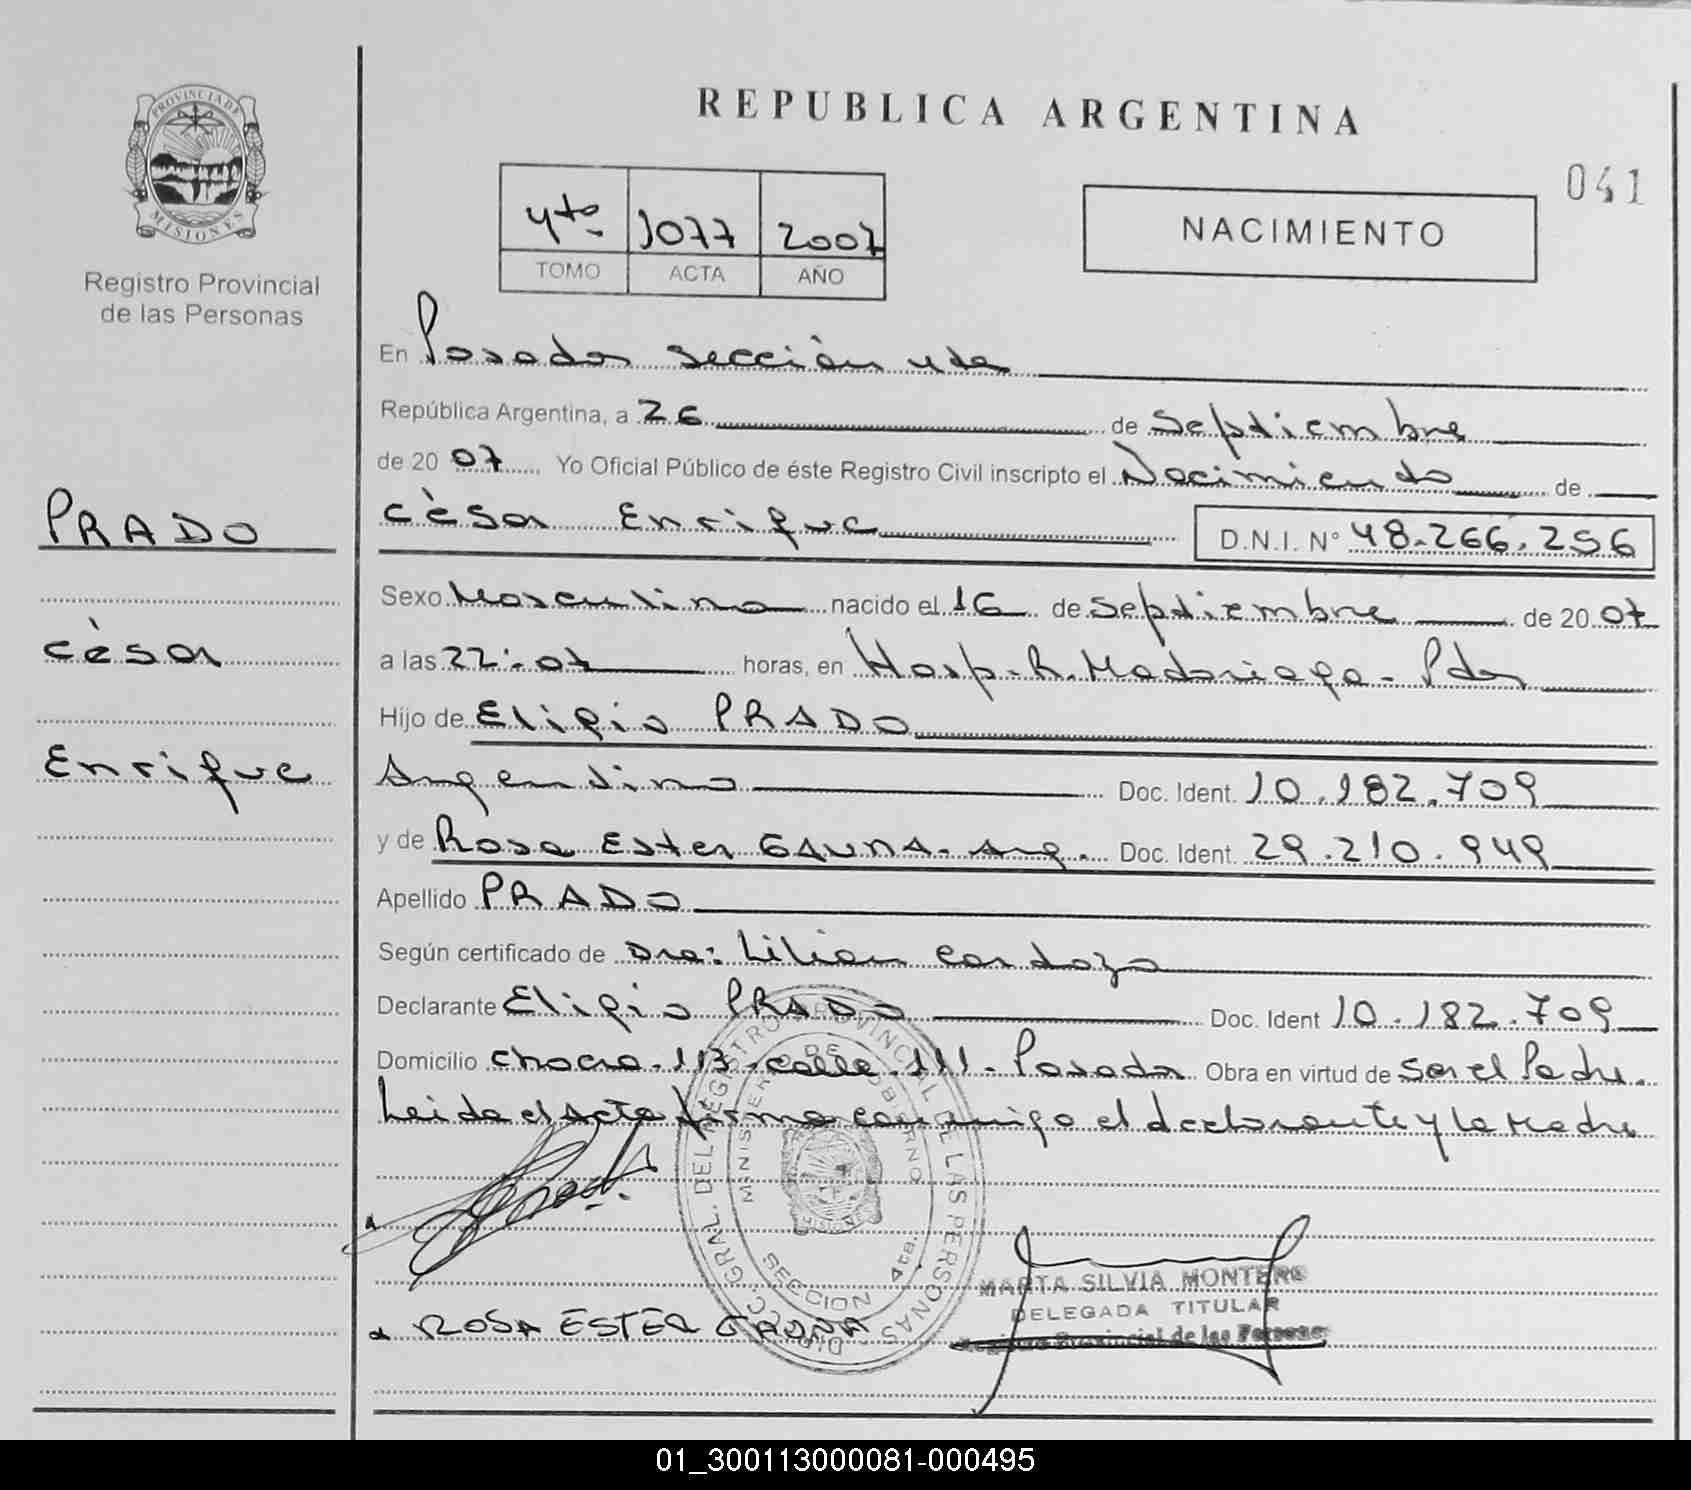 REPUBLICA ARGENTINA
041
PROVINCIA DE
MISIONES
Registro Provincial
de las Personas
4to 1077 2007
TOMO ACTA AÑO
NACIMIENTO
En Posadas sección 4ta
República Argentina, a 26 de Septiembre
de 2007 Yo Oficial Público de éste Registro Civil inscripto el Nacimiento de
César Enrique D.N.I. Nº 48.266.256
PRADO
César
Enrique
Sexo Masculino nacido el 16 de Septiembre de 2007
a las 22:07 horas, en Hosp. R. Madariaga - Pdas
Hijo de Eligio PRADO
Argentino Doc. Ident. 10.182.709
y de Rosa Ester GAUNA - Arg. Doc. Ident 29.210.949
Apellido PRADO
Según certificado de Dra: Lilian Cardozo
Declarante Eligio PRADO Doc. Ident 10.182.709
Domicilio Chacra 113 - calle 111 - Posadas Obra en virtud de Ser el Padre.
Leida el Acta firma conmigo el declarante y la Madre
DIRECC. GRAL. DEL REGISTRO PROVINCIAL DE LAS PERSONAS
MINISTERIO DE GOBIERNO
SECCION 4ta.
MARTA SILVIA MONTERO
DELEGADA TITULAR
Registro Provincial de las Personas
ROSA ESTER GAUNA
01_300113000081-000495